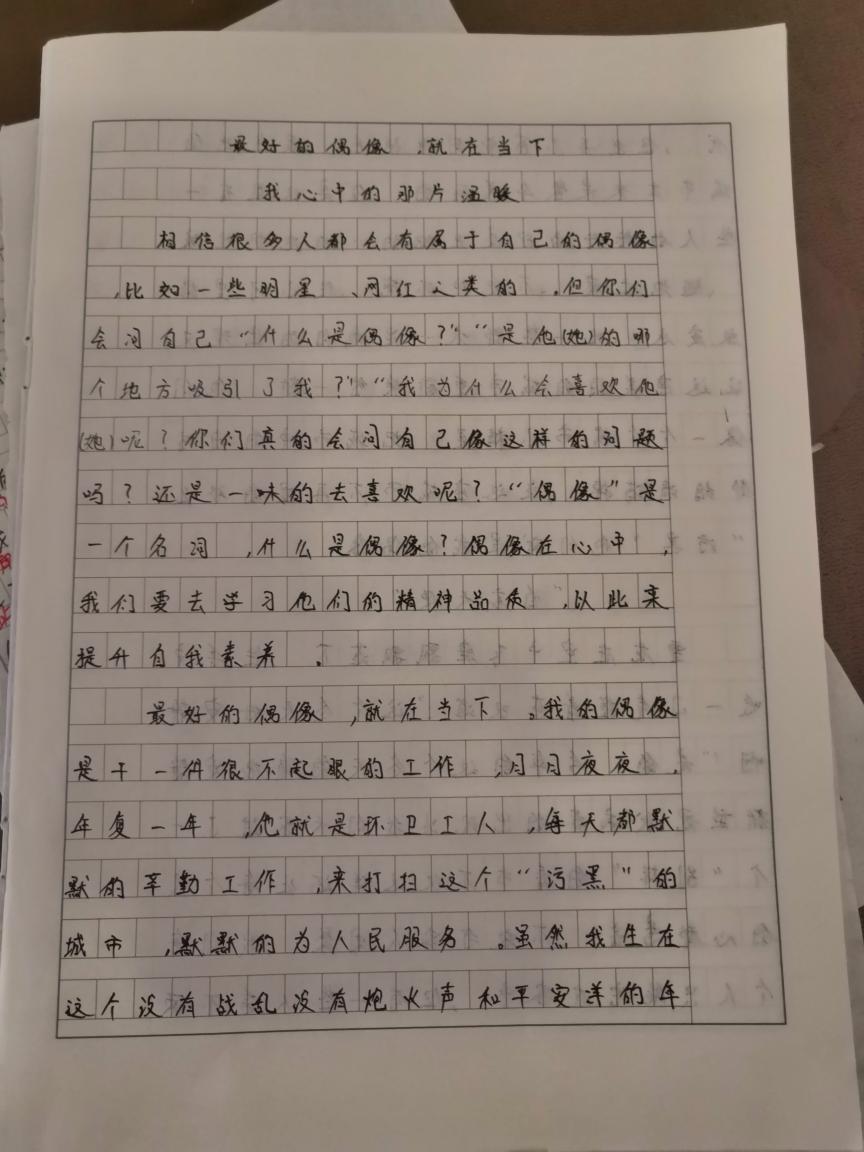 最好的偶像,就在当下
我心中的那片温暖
相信很多人都会有属于自己的偶像
,比如一些明星、网红之类的,但你们
会问自己“什么是偶像?”“是他(她)的哪
个地方吸引了我?”“我为什么会喜欢他
(她)呢?你们真的会问自己像这样的问题
吗?还是一味的去喜欢呢?“偶像”是
一个名词,什么是偶像?偶像在心中,
我们要去学习他们的精神品质,以此来
提升自我素养。
最好的偶像,就在当下。我的偶像
是干一件很不起眼的工作,月月夜夜,
年复一年,他就是环卫工人,每天都默
默的辛勤工作,来打扫这个“污黑”的
城市,默默的为人民服务。虽然我生在
这个没有战乱没有炮火声和平安洋的年